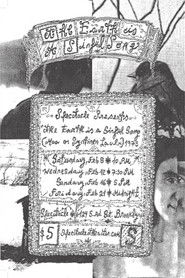 The Earth is
A Sinful Song
Spectacle Presents
The Earth is a Sinful Song
Saturday, Feb 8 10 PM
Wednesday, Feb 12 7:30 PM
Sunday, Feb 16 5 PM
Friday, Feb 21 Midnight
Spectacle 124 S. 3rd St. Brooklyn
$5
$